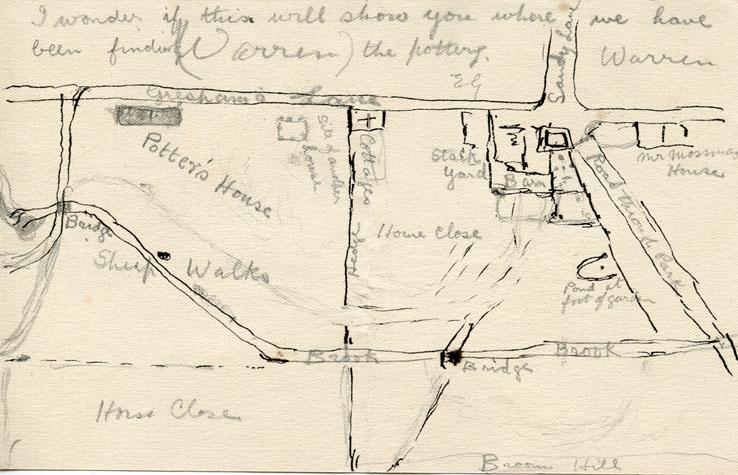 I wonder if this will show you where we have
been finding (Warren) the pottery.
EG
Sandy Lane
Warren
Gresham's Lane
Potter's House
Site of another
house
Cottages
Stack
Yard
Barn
Mr Mossman
House
Road through Park
Home Close
Hedge
Bridge
Sheep Walks
Pond at
foot of garden
Brook
Bridge
Brook
Horse Close
Broom Hill